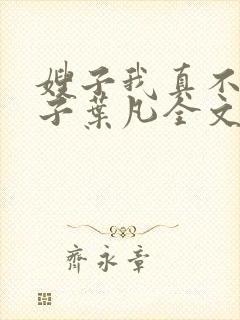 嫂子我真不
子葉凡全文
齊永章